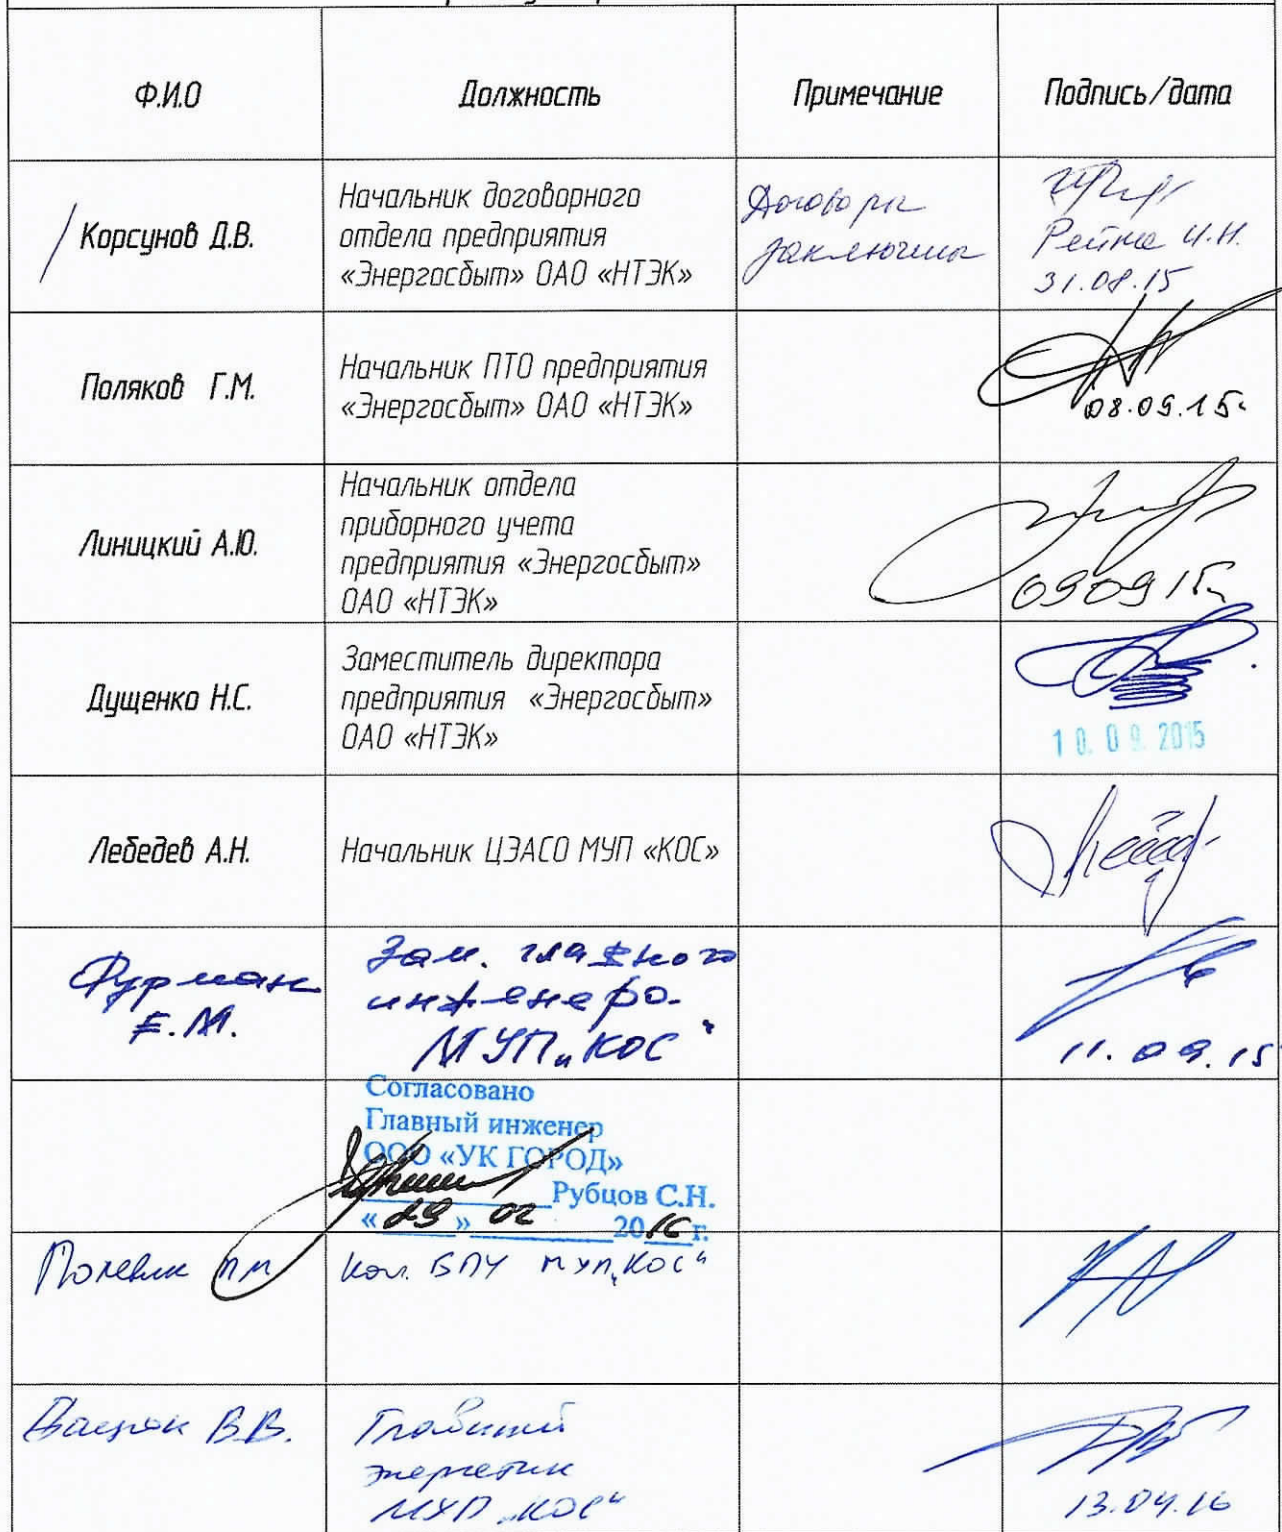 Ф.И.О
Должность
Примечание
Подпись/дата
Корсунов Д.В.
Начальник договорного
отдела предприятия
«Энергосбыт» ОАО «НТЭК»
Договоры
заключены
Рейтке И.Н.
31.08.15
Поляков Г.М.
Начальник ПТО предприятия
«Энергосбыт» ОАО «НТЭК»
08.09.15
Линицкий А.Ю.
Начальник отдела
приборного учета
предприятия «Энергосбыт»
ОАО «НТЭК»
090915
Дущенко Н.С.
Заместитель директора
предприятия «Энергосбыт»
ОАО «НТЭК»
10.09.2015
Лебедев А.Н.
Начальник ЦЭАСО МУП «КОС»
Фурман
Е.М.
Зам. главного
инженера
МУП „КОС"
11.09.15
Согласовано
Главный инженер
ООО «УК ГОРОД»
Рубцов С.Н.
«29» 02 2016 г.
БПУ МУП „КОС"
В.В.
Главный
энергетик
МУП „КОС"
13.04.16